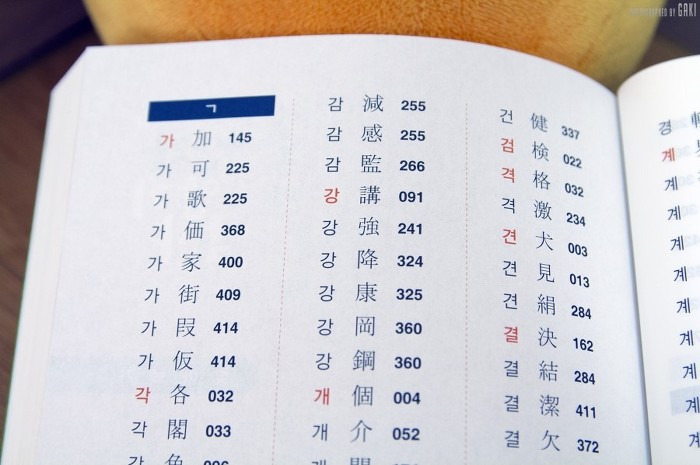 PHOTOGRAPHED BY GAKI
ㄱ
가 加 145
가 可 225
가 歌 225
가 価 368
가 家 400
가 街 409
가 段 414
가 仮 414
각 各 032
각 閣 033
감 減 255
감 感 255
감 監 266
강 講 091
강 強 241
강 降 324
강 康 325
강 岡 360
강 鋼 360
개 個 004
개 介 052
건 健 337
검 検 022
격 格 032
격 激 234
견 犬 003
견 見 013
견 絹 284
결 決 162
결 結 284
결 潔 411
결 欠 372
경
계
계
계
계
계
계
계
계
계
계